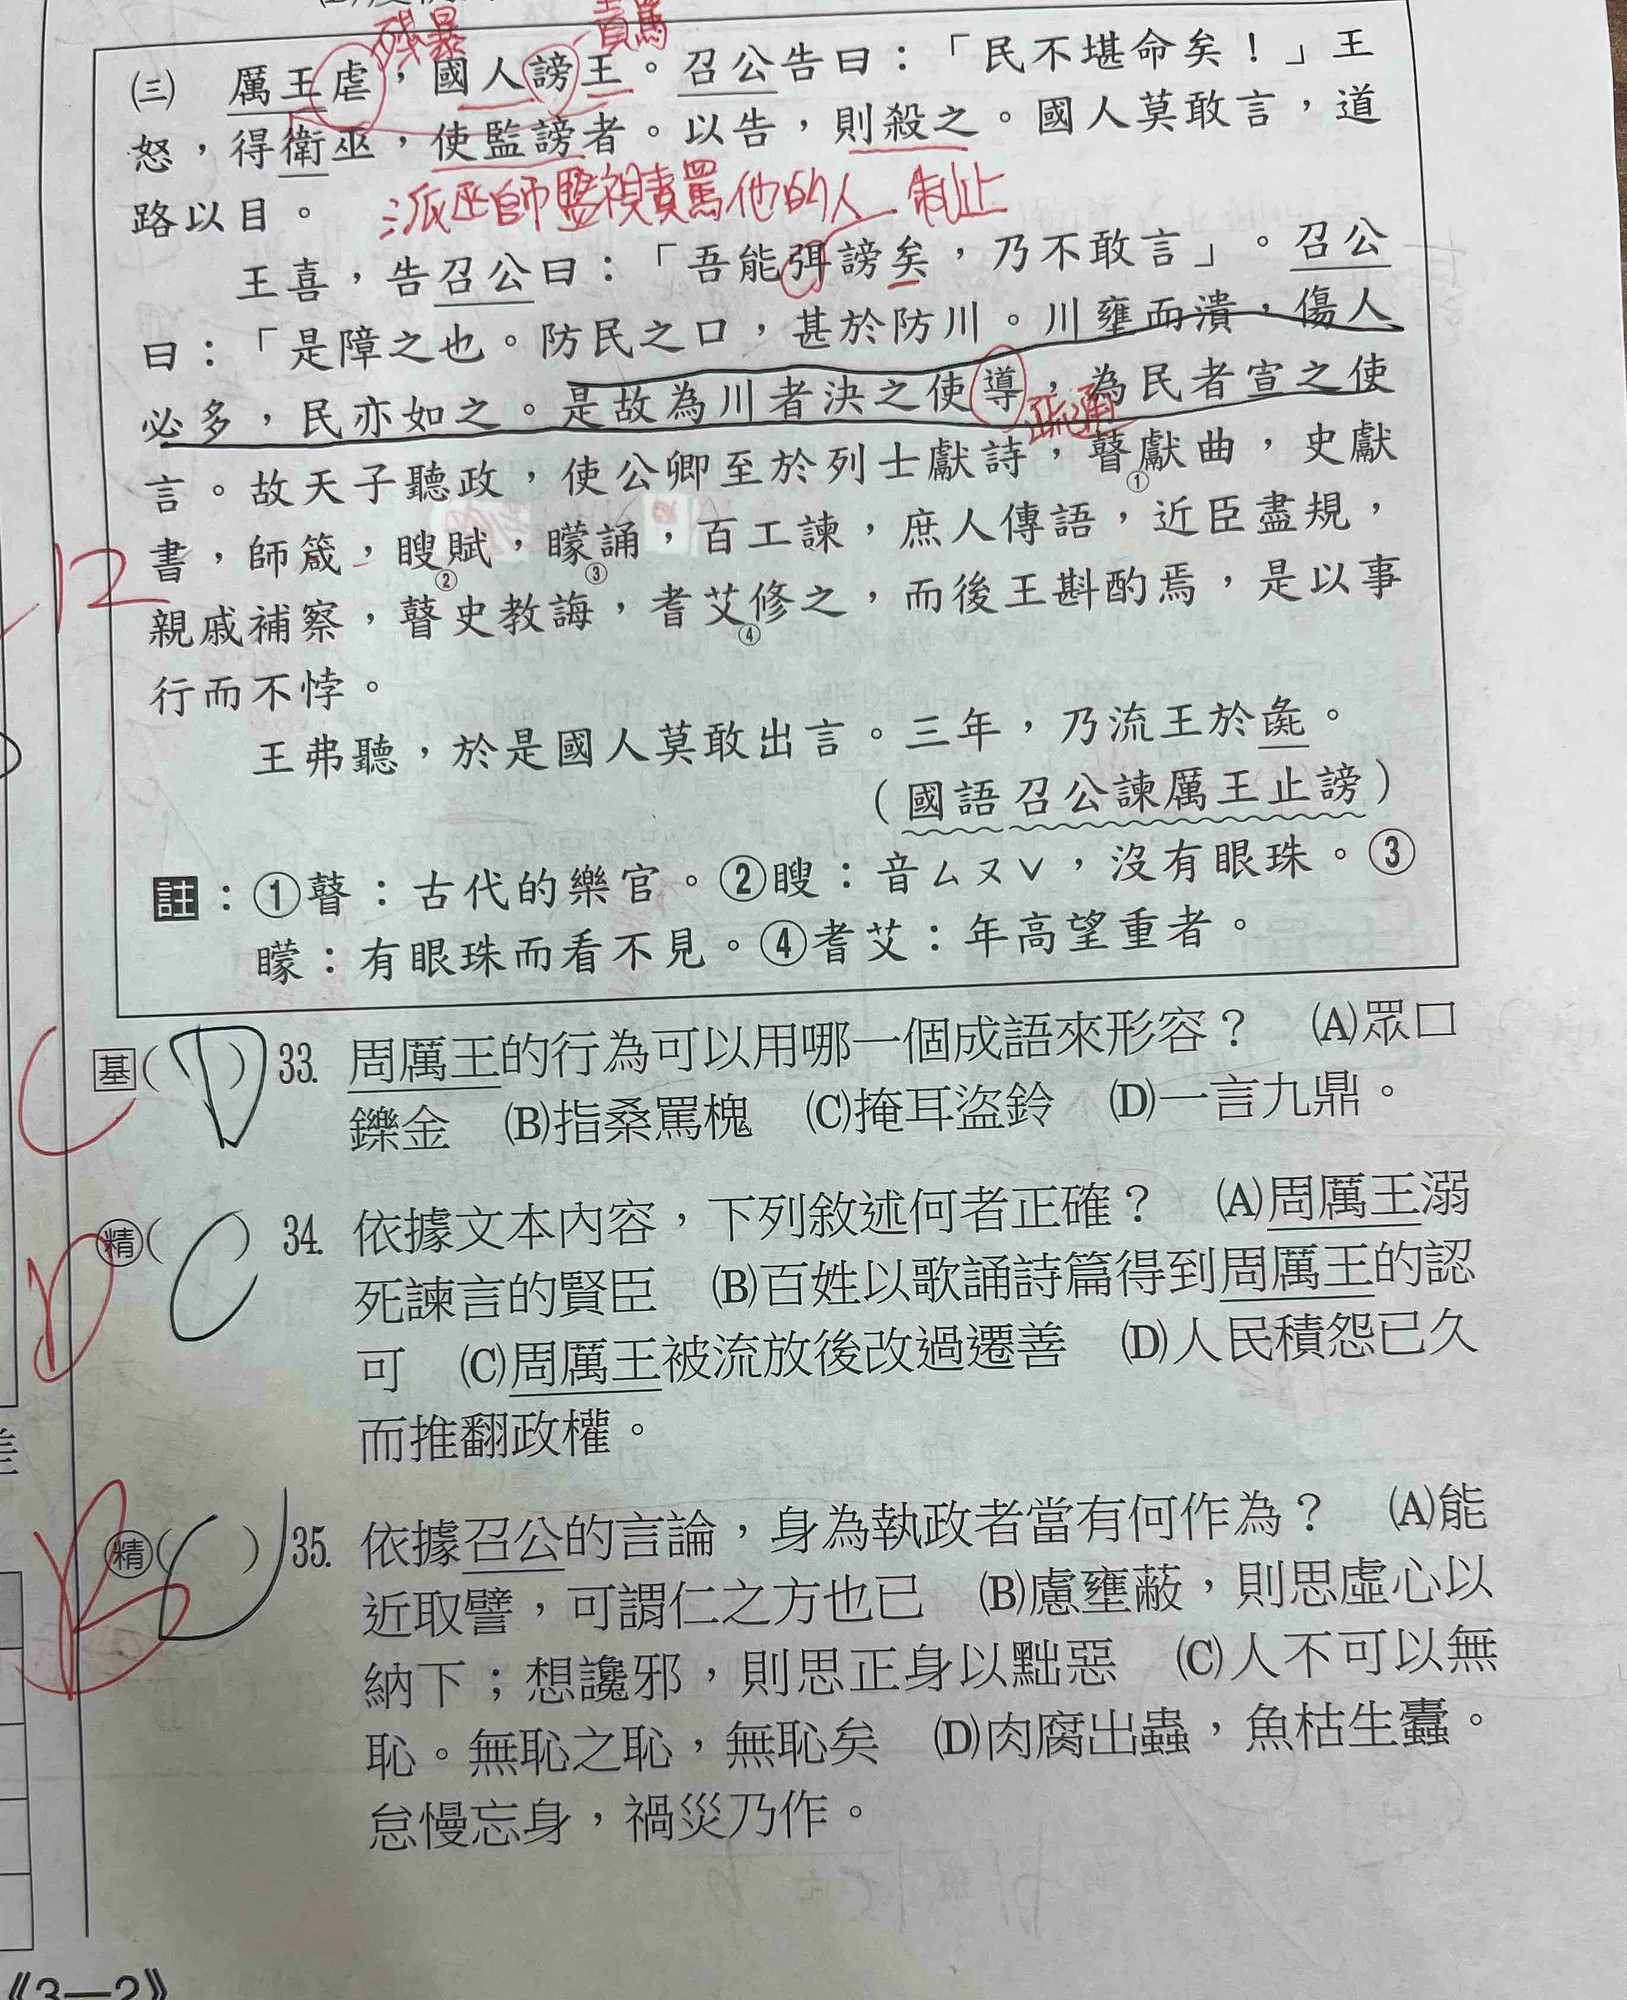 殘暴 責罵
㈢ 厲王虐，國人謗王。召公告曰：「民不堪命矣！」王
怒，得衛巫，使監謗者。以告，則殺之。國人莫敢言，道
路以目。 派巫師監視責罵他的人 制止
王喜，告召公曰：「吾能弭謗矣，乃不敢言」。召公
曰：「是障之也。防民之口，甚於防川。川壅而潰，傷人
必多，民亦如之。是故為川者決之使導，為民者宣之使
疏通
言。故天子聽政，使公卿至於列士獻詩，瞽獻曲，史獻
①
書，師箴，瞍賦，矇誦，百工諫，庶人傳語，近臣盡規，
② ③
-12
親戚補察，瞽史教誨，耆艾修之，而後王斟酌焉，是以事
④
行而不悖。
王弗聽，於是國人莫敢出言。三年，乃流王於彘。
（國語召公諫厲王止謗）
註：①瞽：古代的樂官。②瞍：音ㄙㄡˇ，沒有眼珠。③
矇：有眼珠而看不見。④耆艾：年高望重者。
C 基( D )33. 周厲王的行為可以用哪一個成語來形容？ (A)眾口
鑠金 (B)指桑罵槐 (C)掩耳盜鈴 (D)一言九鼎。
D 精( C )34. 依據文本內容，下列敘述何者正確？ (A)周厲王溺
死諫言的賢臣 (B)百姓以歌誦詩篇得到周厲王的認
可 (C)周厲王被流放後改過遷善 (D)人民積怨已久
而推翻政權。
B 精( )35. 依據召公的言論，身為執政者當有何作為？ (A)能
近取譬，可謂仁之方也已 (B)慮壅蔽，則思虛心以
納下；想讒邪，則思正身以黜惡 (C)人不可以無
恥。無恥之恥，無恥矣 (D)肉腐出蟲，魚枯生蠹。
怠慢忘身，禍災乃作。
《3—2》